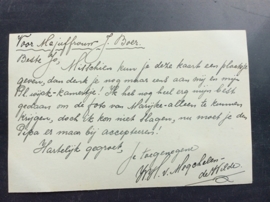 Voor Mejuffrouw J. Boer.
Beste J. Misschien kun je deze kaart een plaatsje
geven, dan denk je nog maar eens aan mij en mijn
kamertje! Ik heb nog heel erg mijn best
gedaan om de foto van Marijke alleen te kunnen
krijgen, doch ik kon niet slagen, nu moet je den
Papa er maar bij accepteren!
Hartelijk gegroet,
je toegenegene
de Wilde